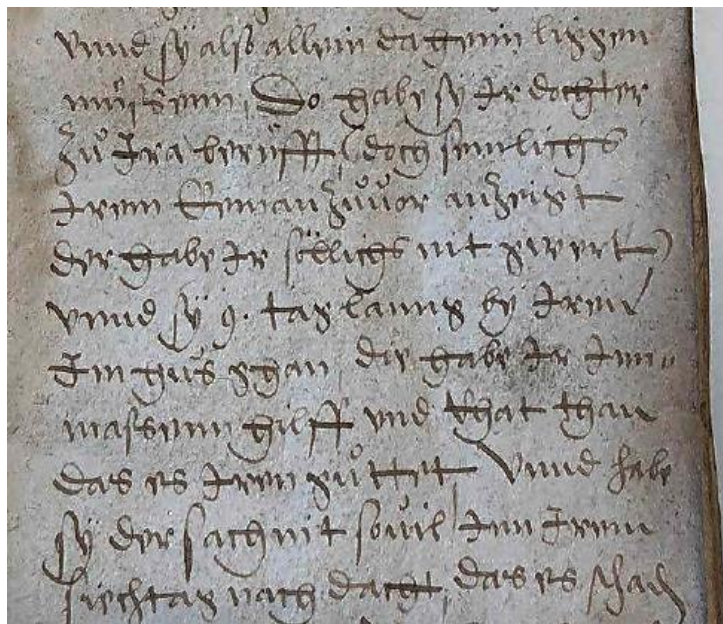 vnnd sy also allein daheim liggen
müessenn, Do habe sy Ir dochter
zů Ira berüefft, doch sömlichs
Irem Eeman zůuor anzeigt
der habe Ir söllichs nit gwert
vnnd sy 9. tag lanng by Iren
Im hus ghan, die habe Ir Inn=
massenn hilff vnd that than
das es Iren gůttet Vnnd habe
sy der sach nit souil Inn Irem
siechtag nach dacht, das es schad